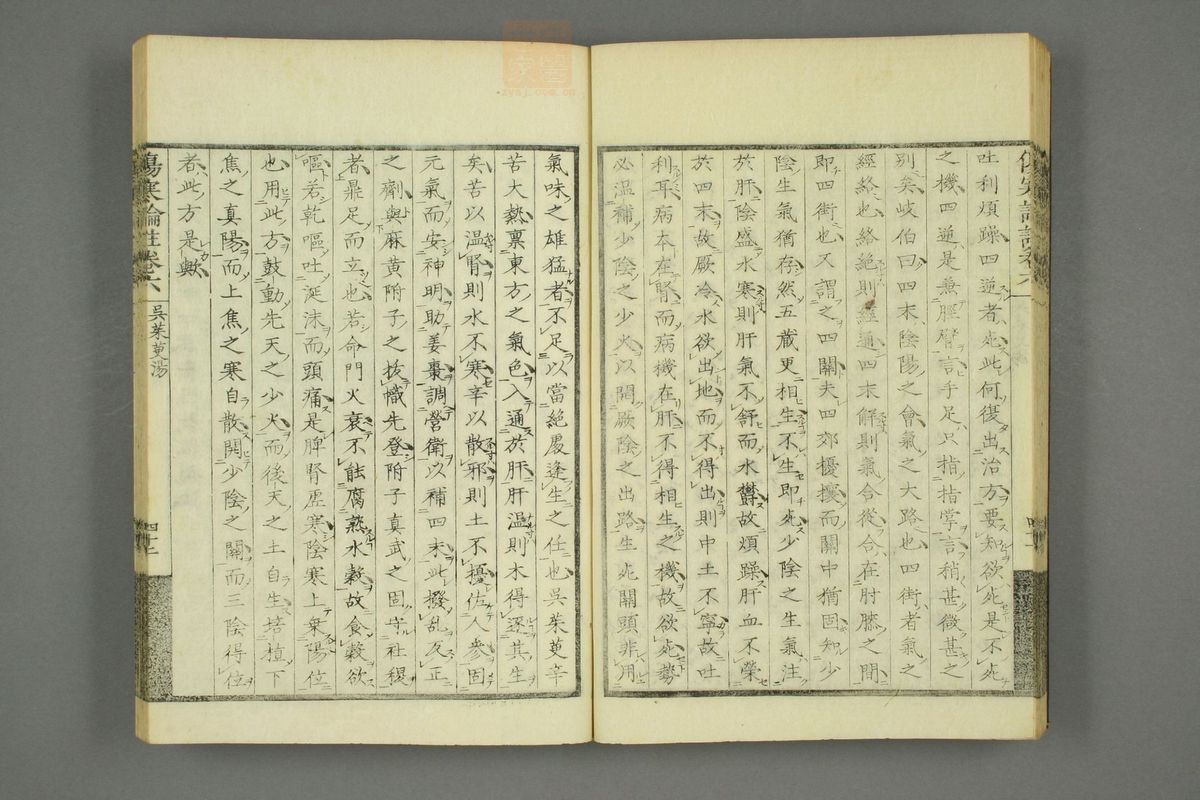 吐利煩躁四逆者死此何復出治方要知欲死是不死
之機四逆是兼脛臂言手足只指指掌言稍甚微甚之
別矣岐伯曰四末陰陽之會氣之大路也四街者氣之
經絡也絡絕則經通四末解則氣合從合在肘膝之間
即四街也又謂之四關夫四郊擾擾而關中猶固知少
陰生氣猶存然五藏更相生不生即死少陰之生氣注
於肝陰盛水寒則肝氣不舒而水鬱故煩躁肝血不榮
於四末故厥冷水欲出地而不得出則中土不寧故吐
利耳病本在腎而病機在肝不得相生之機故欲死勢
必溫補少陰之少火以開厥陰之出路生死關頭非用
氣味之雄猛者不足以當絕處逢生之任也吳茱萸辛
苦大熱禀東方之氣色入通於肝肝溫則木得遂其生
矣苦以溫腎則水不寒辛以散邪則土不擾佐人參固
元氣而安神明助姜棗調營衛以補四末此撥乱反正
之劑與麻黃附子之拔幟先登附子真武之固守社稷
者鼎足而立也若命門火衰不能腐熟水穀故食穀欲
嘔若乾嘔吐涎沫而頭痛是脾腎虛寒陰寒上乘陽位
也用此方鼓動先天之少火而後天之土自生培植下
焦之真陽而上焦之寒自散開少陰之關而三陰得位
者此方是歟
傷寒論註卷六
吳茱萸湯
四十二